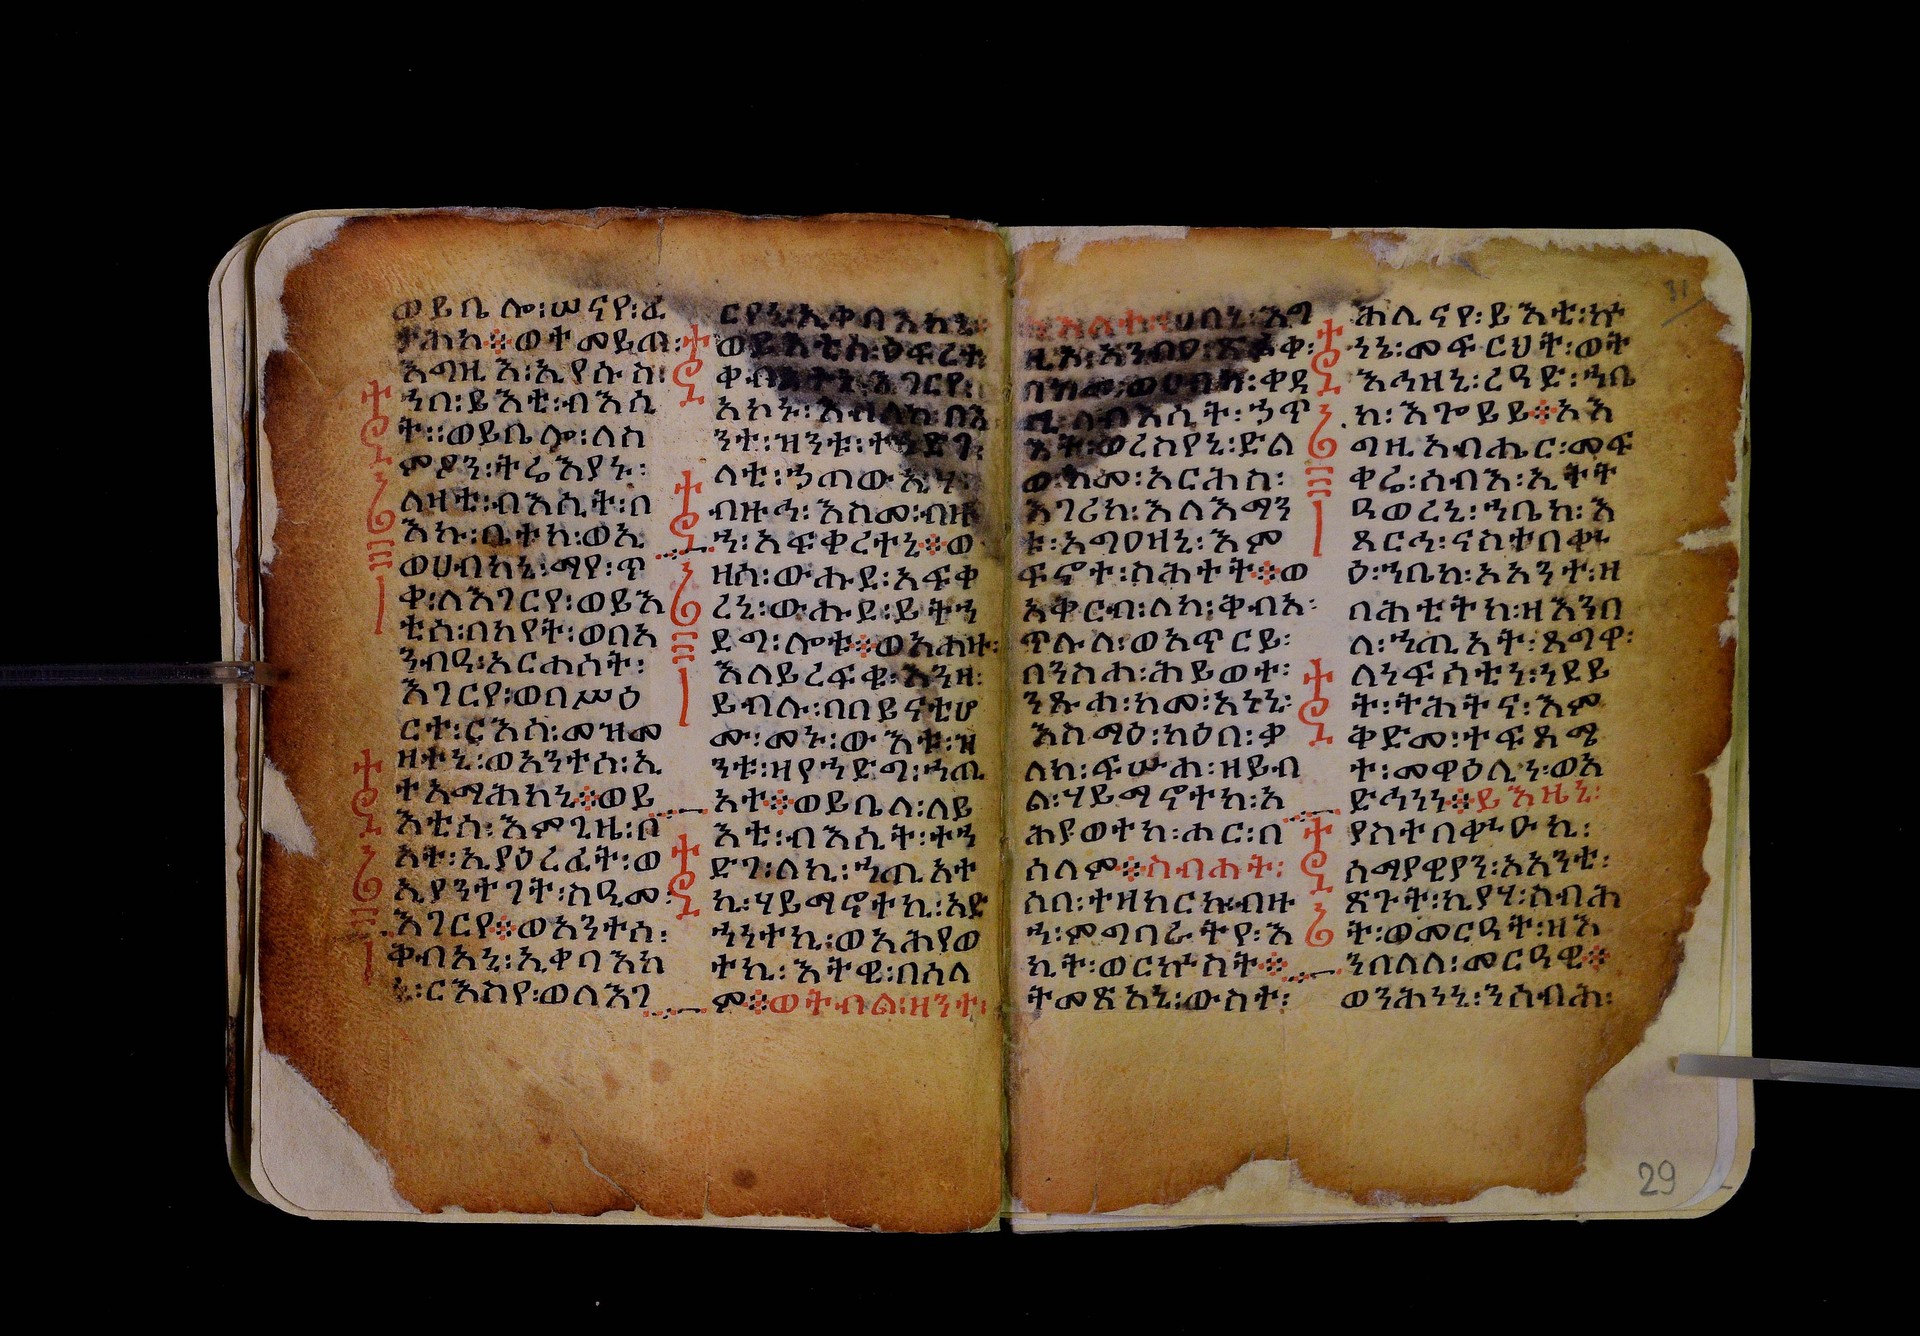 ወይቤሎ፡ሠናየ፡ፈ
ታሕከ፨ወተመይጠ፡
እግዚእ፡ኢየሱስ፡
ኀበ፡ይእቲ፡ብእሲ
ት፡፡ወይቤሎ፡ለስ
ምዖን፡ትሬእያኑ፡
ለዛቲ፡ብእሲት፡በ
እኩ፡ቤተከ፡ወኢ
ወሀብከኒ፡ማየ፡ጥ
ቀ፡ለእገርየ፡ወይእ
ቲሰ፡በከየት፡ወበአ
ንብዓ፡አርሐሰት፡
እገርየ፡ወበሥዕ
ርተ፡ርእሳ፡መዝመ
ዘተኒ፡ወአንተሰ፡ኢ
ተአማሕከኒ፨ወይ
እቲሰ፡እምጊዜ፡ቦ
አት፡ኢያዕረፈት፡ወ
ኢያንተገት፡ስዒመ፡
እገርየ፨ወአንተሰ፡
ቅብአኒ፡ኢቀባእከ
ኒ፡ርእስየ፡ወለእገ
ርየኒ፡ኢቀባእከኒ፨
ወይእቲሰ፡ዕፍረተ፡
ቀብአተኒ፡እገርየ፡
አኮኑ፡እብለከ፡በእ
ንተ፡ዝንቱ፡ተኀድገ፡
ላቲ፡ኃጠውኢሃ፡
ብዙኃ፡እስመ፡ብዙ
ኃ፡አፍቀረተኒ፨ወ
ዘሰ፡ውሑደ፡አፍቀ
ረኒ፡ውሑደ፡ይትኀ
ደግ፡ሎቱ፨ወአሐዙ፡
እለይረፍቁ፡እንዘ፡
ይብሉ፡በበይናቲሆ
ሙ፡መኑ፡ውእቱ፡ዝ
ንቱ፡ዘየኀድግ፡ኀጢ
አተ፨ወይቤላ፡ለይ
እቲ፡ብእሲት፡ተኀ
ድገ፡ለኪ፡ኀጢአተ
ኪ፡ሃይማኖተኪ፡አድ
ኀነተኪ፡ወአሕየወ
ተኪ፡እትዊ፡በሰላ
ም፨ወትብል፡ዘንተ፡
ሀበኒ፡እግ
ዚኦ፡አንብዐ፡
በከመ፡ወሀብካ፡ቀዳ
ሚ፡ለብእሲት፡ኃጥ
እት፡ወረስየኒ፡ድል
ወ፡ከመ፡አርሕስ፡
እገሪከ፡እለእማን
ቱ፡አግዐዛኒ፡እም
ፍኖተ፡ስሕተት፨ወ
አቅርብ፡ለከ፡ቅብአ፡
ጥሉለ፡ወአጥርይ፡
በንስሐ፡ሕይወተ፡
ንጹሐ፡ከመ፡አነኒ፡
እስማዕ፡ከዕበ፡ቃ
ለከ፡ፍሡሐ፡ዘይብ
ል፡ሃይማኖተከ፡አ
ሕየወተከ፡ሐር፡በ
ሰላም፨ስብሐት፡
ሶበ፡ተዘከርኩ፡ብዙ
ኃ፡ምግባራትየ፡እ
ኪት፡ወርኵስት፨
ትመጽአኒ፡ውስተ፡
ሕሊናየ፡ይእቲ፡ኵ
ነኔ፡መፍርህት፡ወት
እኅዘኒ፡ረዓድ፡ኀቤ
ከ፡እጐይይ፨አእ
ግዚአብሔር፡መፍ
ቀሬ፡ሰብእ፡ኢትት
ዓወረኒ፡ኀቤከ፡እ
ጸርኅ፡ናስተበቍ
ዕ፡ኀቤከ፡አአንተ፡ዘ
በሕቲትከ፡ዘእንበ
ለ፡ኀጢአት፡ጸግዋ፡
ለነፍስትነ፡ነደይ
ት፡ትሕትና፡እም
ቅድመ፡ተፍጻሜ
ት፡መዋዕሊነ፡ወአ
ድኅነነ፨ይእዜኒ፡
ያስተበቍዑኪ፡
ሰማያዊያን፡አአንቲ፡
ጽጉት፡ኪያሃ፡ስብሕ
ት፡ወመርዓት፡ዘእ
ንበለለ፡መርዓዊ፨
ወንሕነኒ፡ንሴብሕ፡
31
29